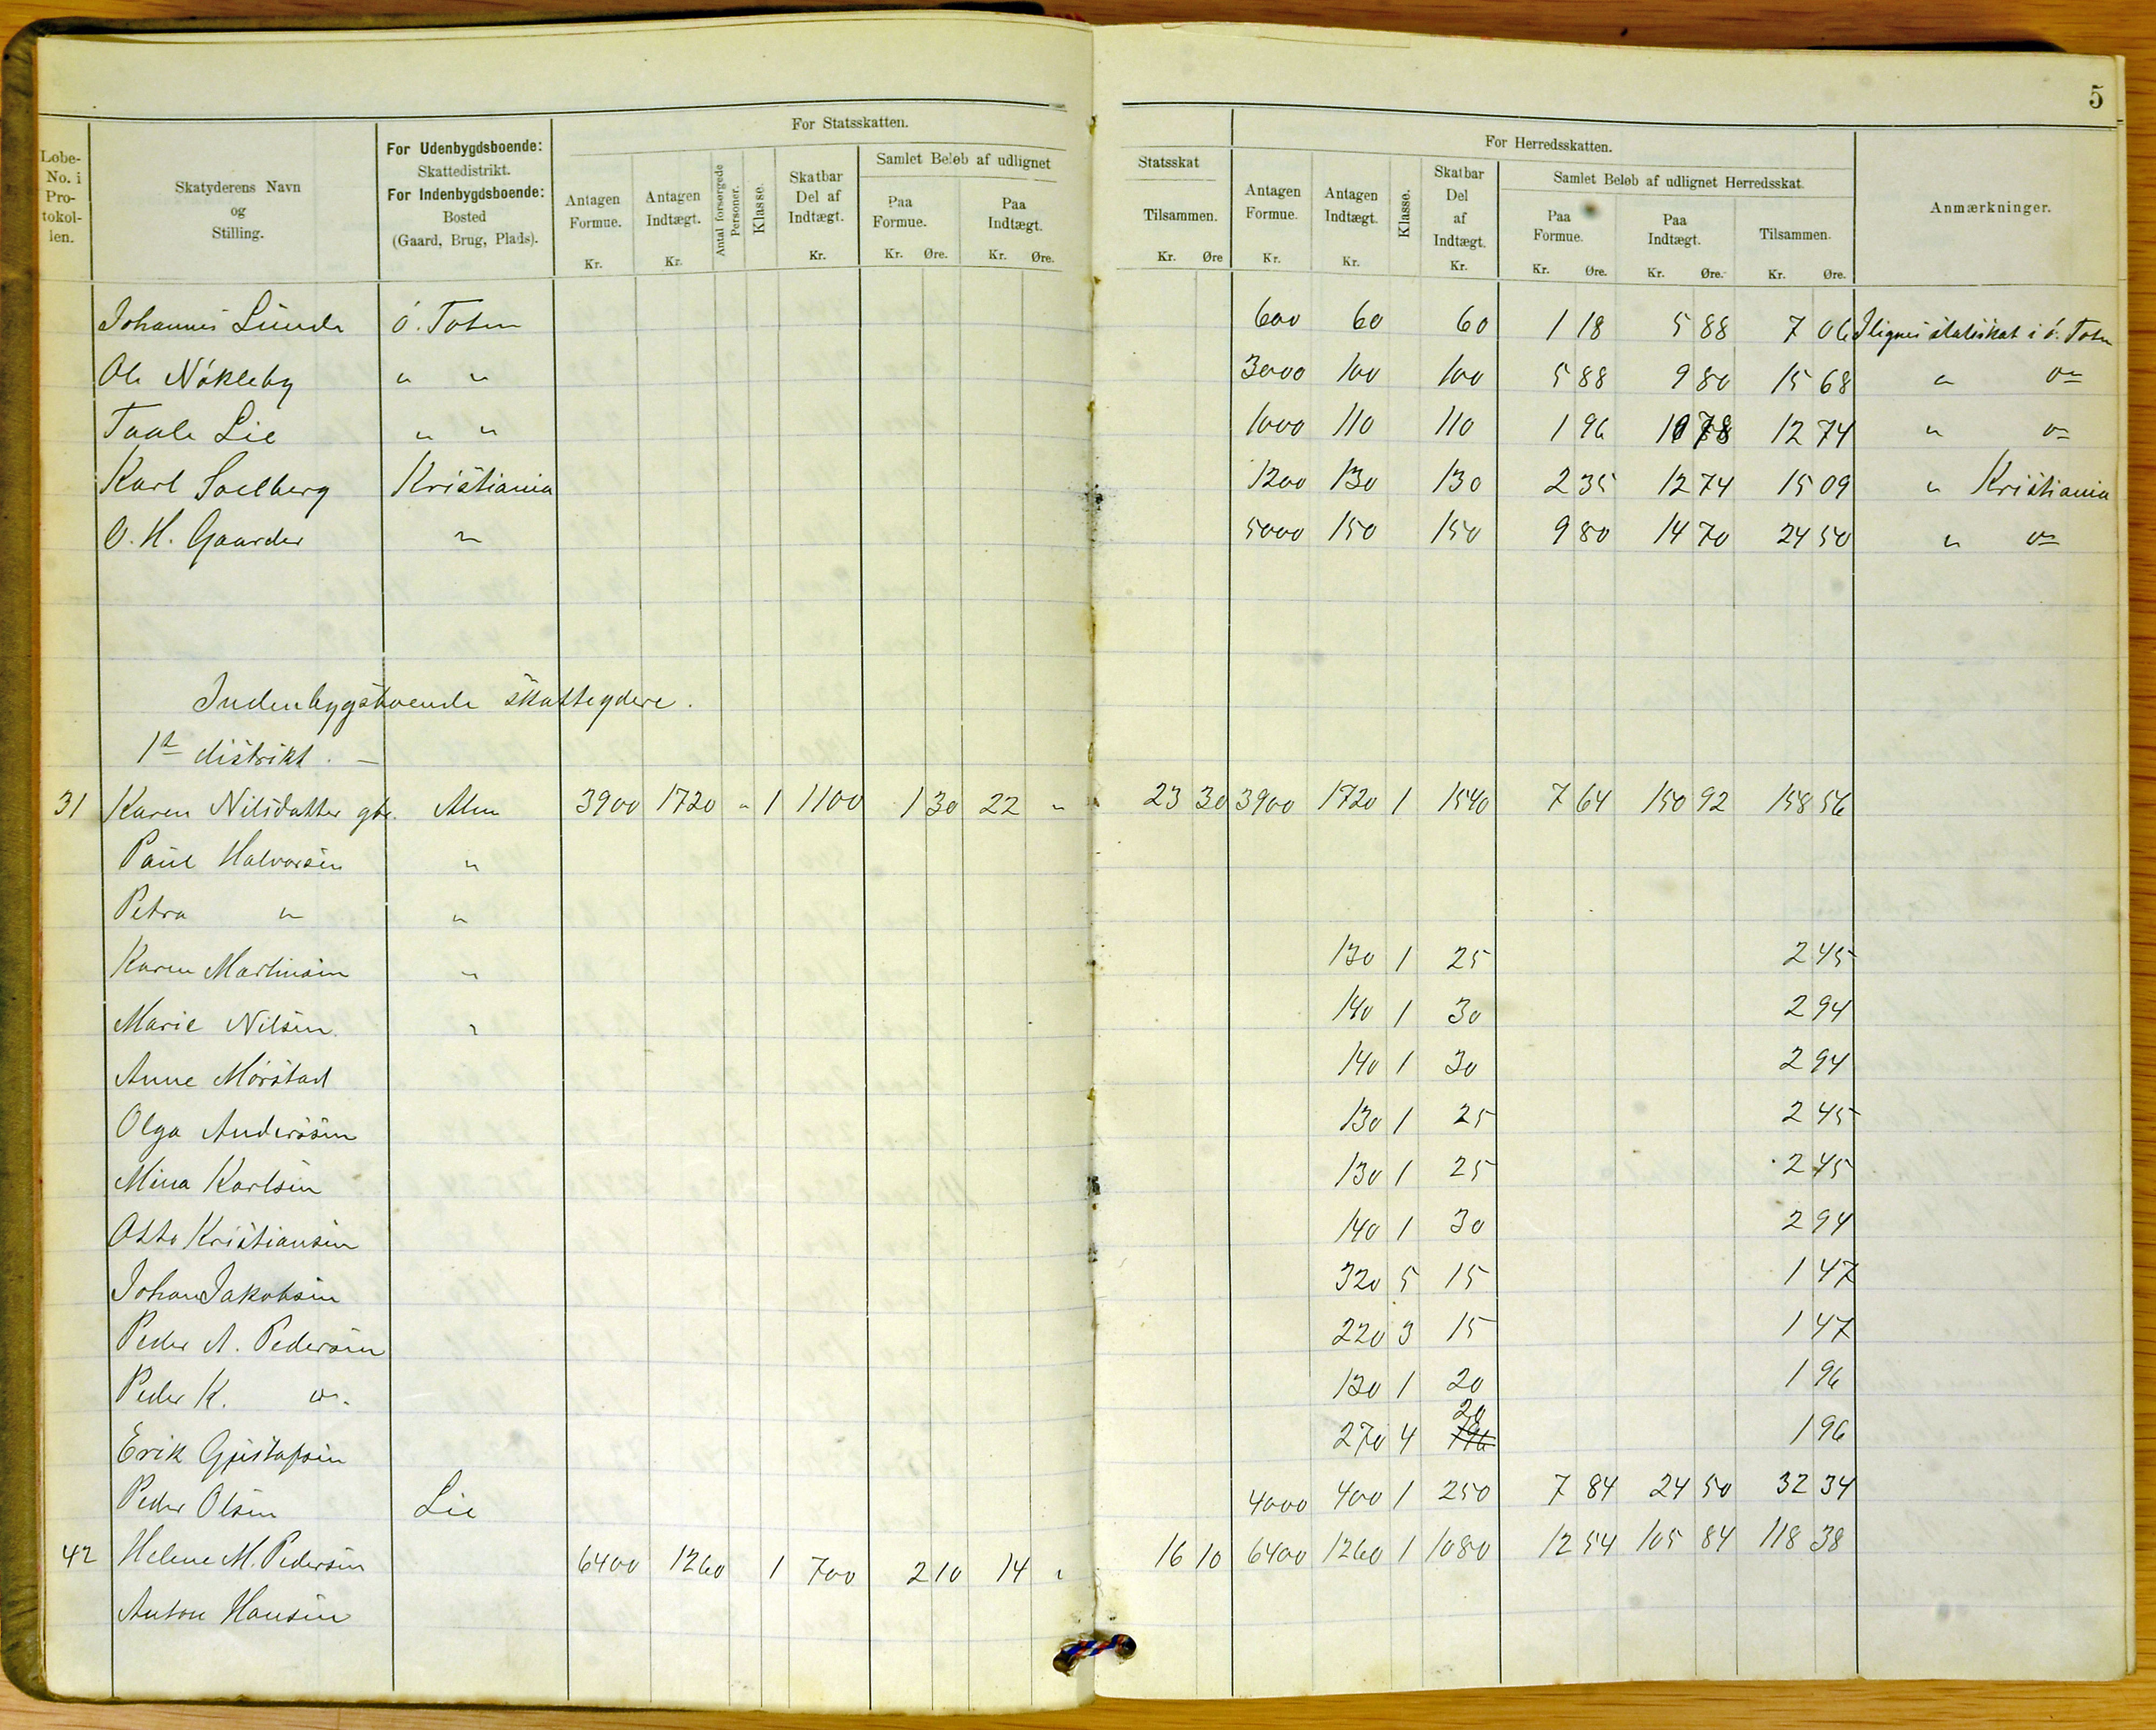 5
For Statsskatten.
For Herredsskatten.
Løbe-No. i Protokollen.
Skatyderens Navn og Stilling.
For Udenbygdsboende: Skattedistrikt. For Indenbygdsboende: Bosted (Gaard, Brug, Plads).
Antagen Formue. Kr.
Antagen Indtægt. Kr.
Antal forsørgede Personer.
Klasse.
Skatbar Del af Indtægt. Kr.
Samlet Beløb af udlignet
Paa Formue. Kr. Øre.
Paa Indtægt. Kr. Øre.
Statsskat Tilsammen. Kr. Øre
Antagen Formue. Kr.
Antagen Indtægt. Kr.
Klasse.
Skatbar Del af Indtægt. Kr.
Samlet Beløb af udlignet Herredsskat.
Paa Formue. Kr. Øre.
Paa Indtægt. Kr. Øre.
Tilsammen. Kr. Øre.
Anmærkninger.
Johannes Lunde Ø. Toten 600 60 60 1 18 5 88 7 06 Ilignes statsskat i Ø. Toten
Ole Nøkleby " " 3000 100 100 5 88 9 80 15 68 " do
Taale Lie " " 1000 110 110 1 96 10 78 12 74 " do
Karl Soelberg Kristiania 1200 130 130 2 35 12 74 15 09 " Kristiania
O. H. Gaarder " 5000 150 150 9 80 14 70 24 50 " do
Indenbygsboende skatteydere.
1ste distrikt. —
31 Karen Nilsdatter gbr. Alm 3900 1720 " 1 1100 1 30 22 " 23 30 3900 1720 1 1540 7 64 150 92 158 56
Paul Halvorsen "
Petra " "
Karen Martinsen " 130 1 25 2 45
Marie Nilsen " 140 1 30 2 94
Anne Mørstad 140 1 30 2 94
Olga Andersen 130 1 25 2 45
Mina Karlsen 130 1 25 2 45
Otto Kristiansen 140 1 30 2 94
Johan Jakobsen 320 5 15 1 47
Peder A. Pedersen 220 3 15 1 47
Peder K. do. 130 1 20 1 96
Erik Gustafsen 270 4 20 1 96
Peder Olsen Lie 4000 400 1 250 7 84 24 50 32 34
42 Helene M. Pedersen 6400 1260 1 700 2 10 14 " 16 10 6400 1260 1 1080 12 54 105 84 118 38
Anton Hansen